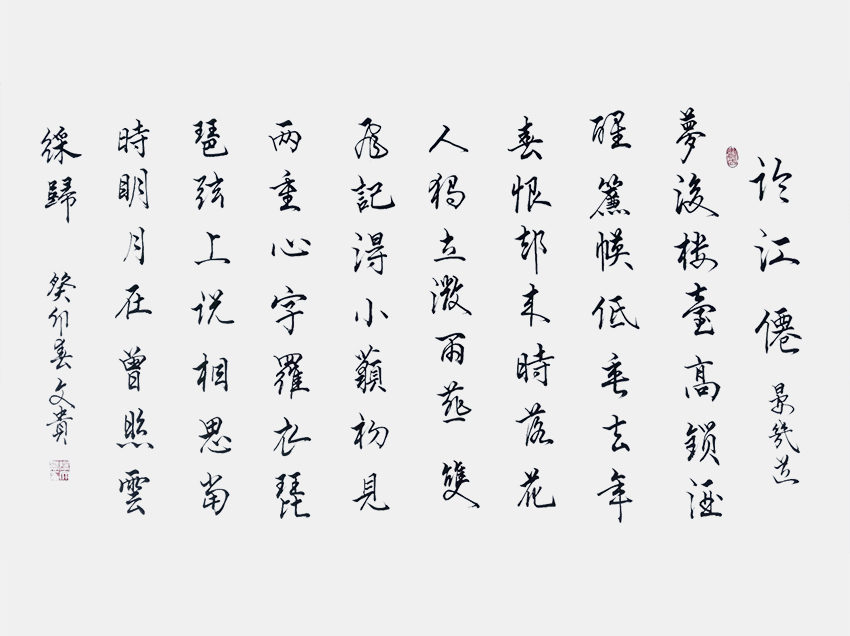 临江僊 晏幾道
夢後楼臺高鎖酒
醒簾幙低垂去年
春恨却来時落花
人獨立微雨燕雙
飛記得小蘋初見
两重心字羅衣琵
琶弦上说相思當
時明月在曾照雲
綵歸 癸卯春文貴